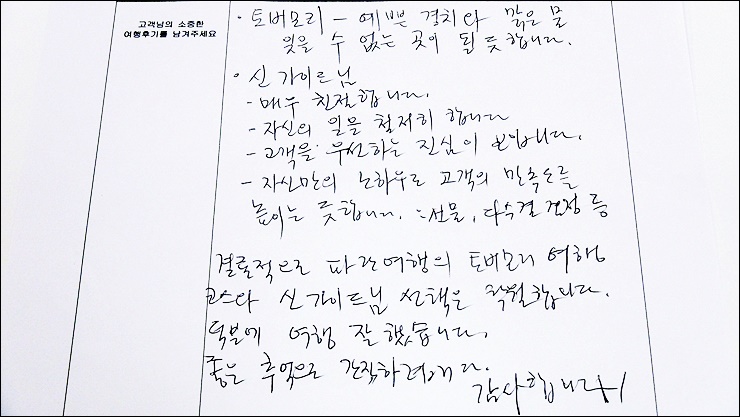 고객님의 소중한
여행후기를 남겨주세요
· 토버모리 - 예쁜 경치와 맑은 물
잊을 수 없는 곳이 될 듯합니다.
· 신 가이드님
- 매우 친절합니다.
- 자신의 일을 철저히 합니다
- 고객을 우선하는 진심이 보입니다.
- 자신만의 노하우로 고객의 만족도를
높이는 듯합니다. 선물, 다수결 결정 등
결론적으로 파란여행의 토버모리 여행
코스와 신가이드님 선택은 탁월합니다.
덕분에 여행 잘 했습니다.
좋은 추억으로 간직하려합니다.
감사합니다